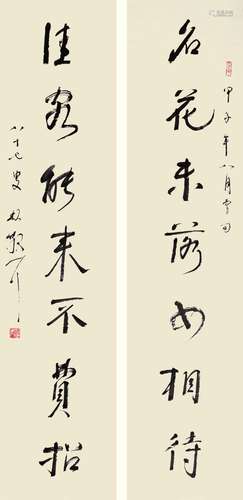 名花未落如相待
甲子年八月雪田
佳客能来不費招
八十七叟林散耳